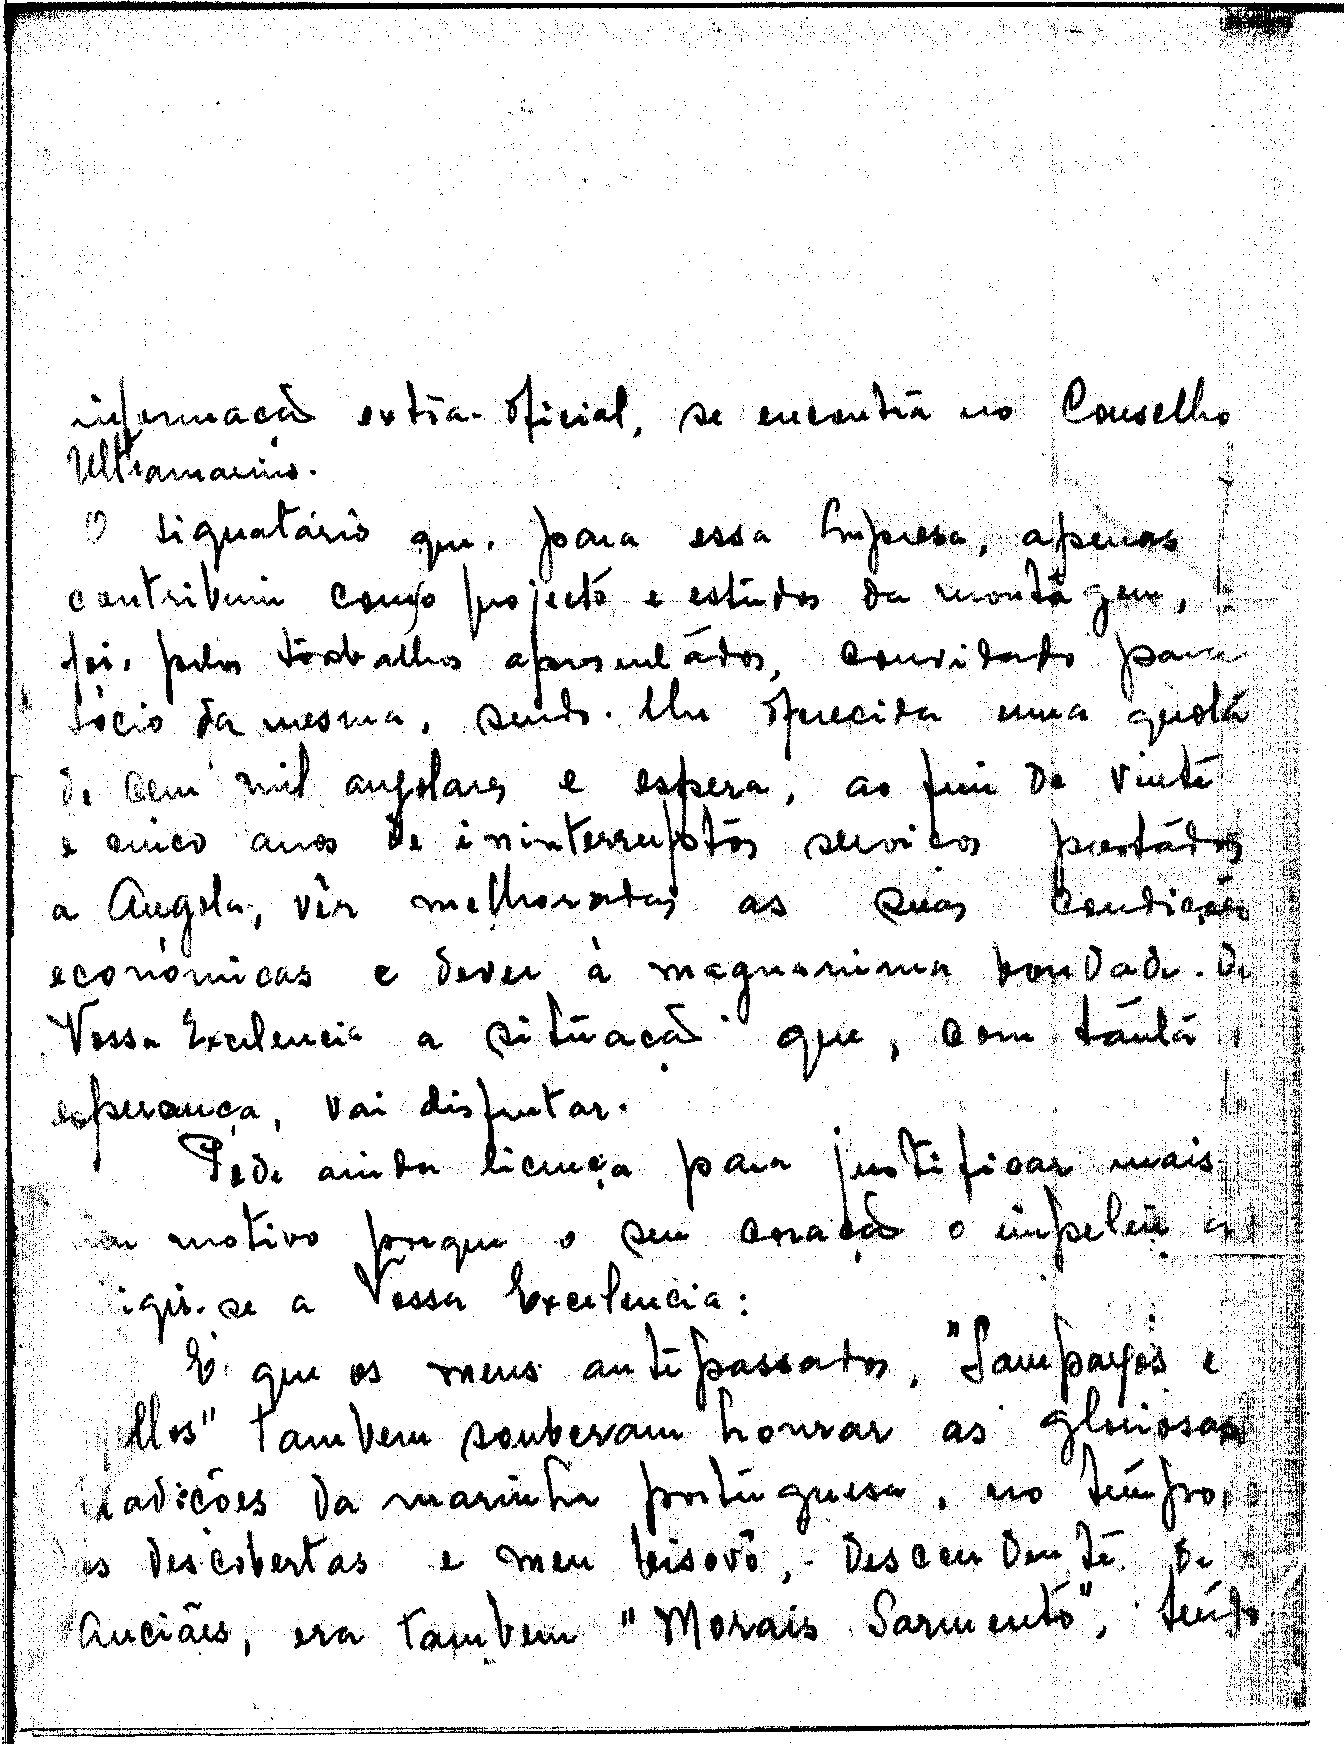 informação extra-oficial, se encontra no Conselho
Ultramarino.
O signatário que, para essa Empresa, apenas
contribuiu com o projecto e estudos da montagem,
foi, pelos trabalhos apresentados, convidado para
sócio da mesma, sendo-lhe oferecida uma quota
de cem mil angolares e espera, ao fim de vinte
e cinco anos de ininterruptos serviços prestados
a Angola, vêr melhoradas as suas condições
económicas e dever à magnanima bondade de
Vossa Excelencia a situação que, com tanta
esperança, vai disfrutar.
Pede ainda licença para justificar mais
motivo porque o seu coração o impeliu a
igir-se a Vossa Excelencia:
É que os meus antepassados, "Sampayos e
llos" tambem souberam honrar as gloriosas
tradições da marinha portuguesa, no tempo
as descobertas e meu bisavô, descendente de
Anciães, era tambem "Morais Sarmento", tendo